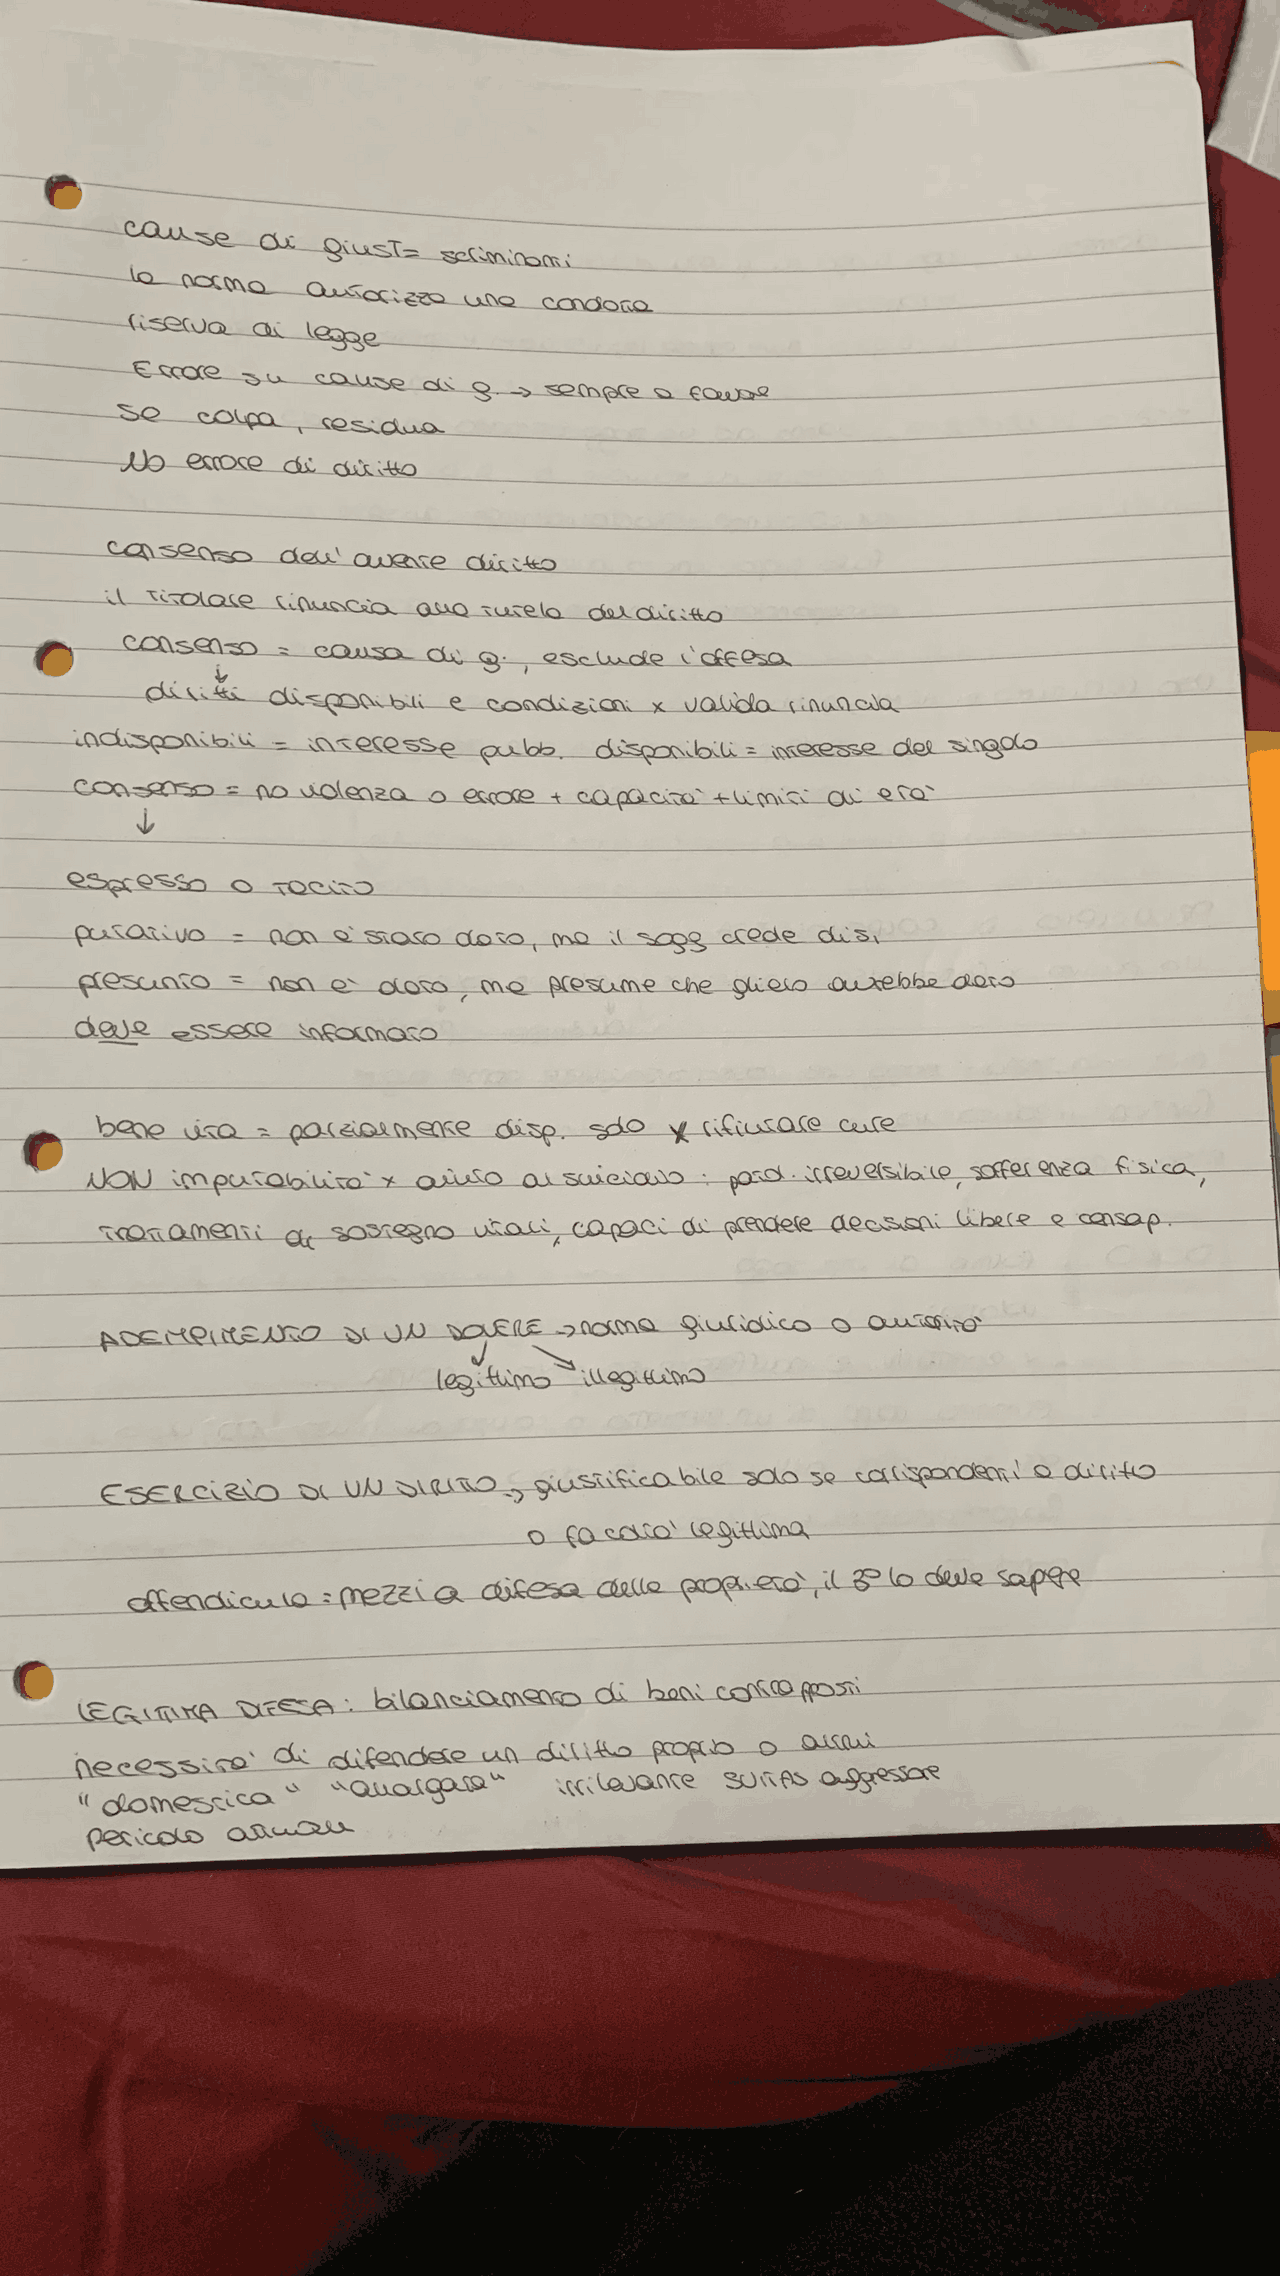 cause di giust= scriminanti
la norma autorizza una condotta
riserva di legge
Errore su cause di g. → sempre a favore
se colpa, residua
No errore di diritto
consenso dell'avente diritto
il titolare rinuncia alla tutela del diritto
consenso = causa di g., esclude l'offesa
↓
diritti disponibili e condizioni x valida rinuncia
indisponibili = interesse pubb. disponibili = interesse del singolo
consenso = no violenza o errore + capacità + limiti di età
↓
espresso o tacito
putativo = non è stato dato, ma il sogg crede di si
presunto = non è dato, ma presume che glielo avrebbe dato
deve essere informato
bene vita = parzialmente disp. solo x rifiutare cure
NON imputabilità x aiuto al suicidio : pato. irreversibile, sofferenza fisica,
trattamenti di sostegno vitali, capaci di prendere decisioni libere e consap.
ADEMPIMENTO DI UN DOVERE → norma giuridica o autorità
↓ ↘
legittimo illegittimo
ESERCIZIO DI UN DIRITTO → giustificabile solo se corrispondenti a diritto
o facoltà legittima
offendicula = mezzi a difesa della proprietà, il 3° lo deve sapere
LEGITTIMA DIFESA : bilanciamento di beni contrapposti
necessità di difendere un diritto proprio o altrui
"domestica" "allargata" irrilevante aggressore
pericolo attuale